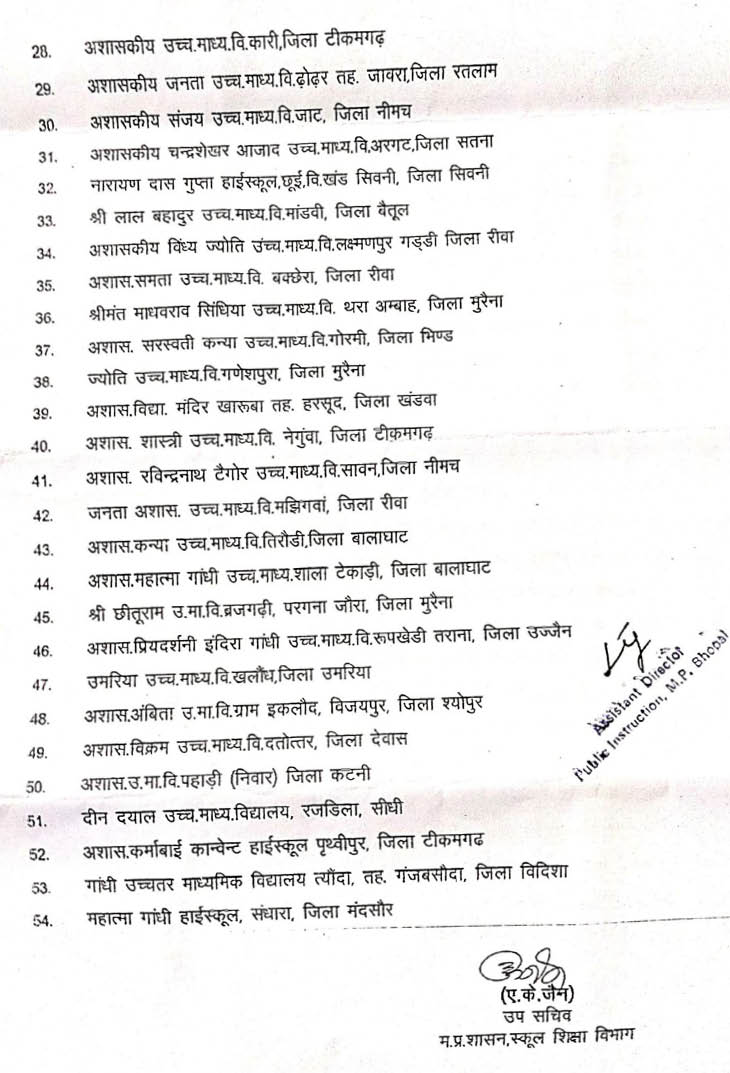 28. अशासकीय उच्च.माध्य.वि.कारी,जिला टीकमगढ़
29. अशासकीय जनता उच्च.माध्य.वि.ढ़ोढ़र तह. जावरा,जिला रतलाम
30. अशासकीय संजय उच्च.माध्य.वि.जाट, जिला नीमच
31. अशासकीय चन्द्रशेखर आजाद उच्च.माध्य.वि,अरगट,जिला सतना
32. नारायण दास गुप्ता हाईस्कूल,छूई,वि.खंड सिवनी, जिला सिवनी
33. श्री लाल बहादुर उच्च.माध्य.वि.मांडवी, जिला बैतूल
34. अशासकीय विंध्य ज्योति उंच्च.माध्य.वि.लक्ष्मणपुर गड्डी जिला रीवा
35. अशास.समता उच्च.माध्य.वि. बक्छेरा, जिला रीवा
36. श्रीमंत माधवराव सिंधिया उच्च.माध्य.वि. थरा अम्बाह, जिला मुरैना
37. अशास. सरस्वती कन्या उच्च.माध्य.वि.गोरमी, जिला भिण्ड
38. ज्योति उच्च.माध्य.वि.गणेशपुरा, जिला मुरैना
39. अशास.विद्या. मंदिर खारूबा तह. हरसूद, जिला खंडवा
40. अशास. शास्त्री उच्च.माध्य.वि. नेगुंवा, जिला टीक़मगढ़
41. अशास. रविन्द्रनाथ टैगोर उच्च.माध्य.वि.सावन,जिला नीमच
42. जनता अशास. उच्च.माध्य.वि.मझिगवां, जिला रीवा
43. अशास.कन्या उच्च.माध्य.वि.तिरौडी,जिला बालाघाट
44. अशास.महात्मा गांधी उच्च.माध्य.शाला टेकाड़ी, जिला बालाघाट
45. श्री छीतूराम उ.मा.वि.ब्रजगढ़ी, परगना जौरा, जिला मुरैना
46. अशास.प्रियदर्शनी इंदिरा गांधी उच्च.माध्य.वि.रूपखेडी तराना, जिला उज्जैन
47. उमरिया उच्च.माध्य.वि.खलौंध,जिला उमरिया
48. अशास.अंबिता उ.मा.वि.ग्राम इकलौद, विजयपुर, जिला श्योपुर
49. अशास.विक्रम उच्च.माध्य.वि.दतोत्तर, जिला देवास
50. अशास.उ.मा.वि.पहाड़ी (निवार) जिला कटनी
51. दीन दयाल उच्च.माध्य.विद्यालय, रजडिला, सीधी
52. अशास.कर्माबाई कान्वेन्ट हाईस्कूल पृथ्वीपुर, जिला टीकमगढ
53. गांधी उच्चतर माध्यमिक विद्यालय त्यौंदा, तह. गंजबसौदा, जिला विदिशा
54. महात्मा गांधी हाईस्कूल, संधारा, जिला मंदसौर
Assistant Director
Public Instruction, M.P. Bhopal
(ए.के.जैन)
उप सचिव
म.प्र.शासन,स्कूल शिक्षा विभाग